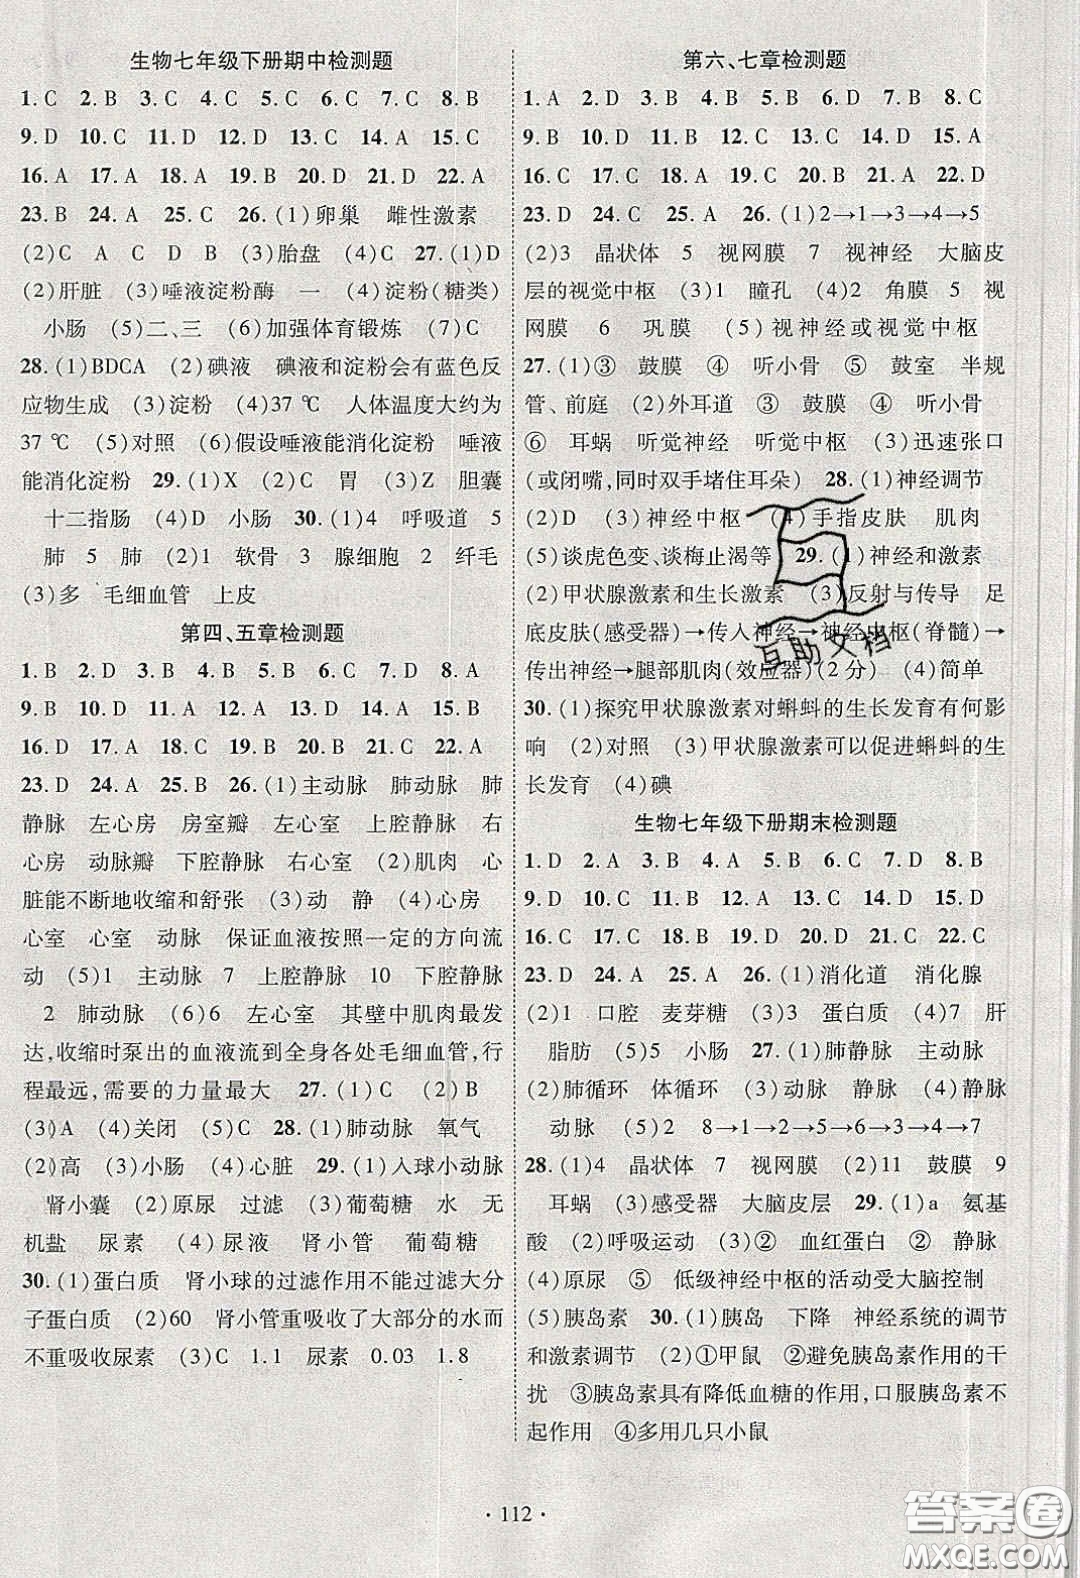 生物七年级下册期中检测题
1.C 2.B 3.C 4.C 5.C 6.C 7.C 8.B
9.D 10.C 11.D 12.D 13.C 14.A 15.C
16.A 17.A 18.A 19.B 20.D 21.D 22.A
23.B 24.A 25.C 26.(1)卵巢 雌性激素
(2)C A C D B (3)胎盘 (4)C 27.(1)D
(2)肝脏 (3)唾液淀粉酶 一 (4)淀粉(糖类)
小肠 (5)二、三 (6)加强体育锻炼 (7)C
28.(1)BDCA (2)碘液 碘液和淀粉会有蓝色反
应物生成 (3)淀粉 (4)37 ℃ 人体温度大约为
37 ℃ (5)对照 (6)假设唾液能消化淀粉 唾液
能消化淀粉 29.(1)X (2)C 胃 (3)Z 胆囊
十二指肠 (4)D 小肠 30.(1)4 呼吸道 5
肺 5 肺 (2)1 软骨 3 腺细胞 2 纤毛
(3)多 毛细血管 上皮
第四、五章检测题
1.B 2.D 3.B 4.B 5.B 6.C 7.D 8.A
9.B 10.D 11.A 12.A 13.D 14.A 15.B
16.D 17.A 18.C 19.B 20.A 21.C 22.B
23.D 24.A 25.B 26.(1)主动脉 肺动脉 肺
静脉 左心房 房室瓣 左心室 上腔静脉 右
心房 动脉瓣 下腔静脉 右心室 (2)肌肉 心
脏能不断地收缩和舒张 (3)动 静 (4)心房
心室 心室 动脉 保证血液按照一定的方向流
动 (5)1 主动脉 7 上腔静脉 10 下腔静脉
2 肺动脉 (6)6 左心室 其壁中肌肉最发
达,收缩时泵出的血液流到全身各处毛细血管,行
程最远,需要的力量最大 27.(1)C (2)B
(3)A (4)关闭 (5)C 28.(1)肺动脉 氧气
(2)高 (3)小肠 (4)心脏 29.(1)入球小动脉
肾小囊 (2)原尿 过滤 (3)葡萄糖 水 无
机盐 尿素 (4)尿液 肾小管 葡萄糖
30.(1)蛋白质 肾小球的过滤作用不能过滤大分
子蛋白质 (2)60 肾小管重吸收了大部分的水而
不重吸收尿素 (3)C 1.1 尿素 0.03 1.8
第六、七章检测题
1.A 2.D 3.B 4.B 5.B 6.D 7.B 8.C
9.B 10.B 11.C 12.C 13.D 14.D 15.A
16.C 17.C 18.C 19.B 20.A 21.A 22.D
23.D 24.D 25.A 26.(1)2→1→3→4→5
(2)3 晶状体 5 视网膜 7 视神经 大脑皮
层的视觉中枢 (3)1 瞳孔 (4)2 角膜 5 视
网膜 6 巩膜 (5)视神经或视觉中枢
27.(1)③ 鼓膜 ④ 听小骨 ⑤ 鼓室 半规
管、前庭 (2)外耳道 ③ 鼓膜 ④ 听小骨
⑥ 耳蜗 听觉神经 听觉中枢 (3)迅速张口
(或闭嘴,同时双手堵住耳朵) 28.(1)神经调节
(2)D (3)神经中枢 (4)手指皮肤 肌肉
(5)谈虎色变、谈梅止渴等 29.(1)神经和激素
(2)甲状腺激素和生长激素 (3)反射与传导 足
底皮肤(感受器)→传入神经→神经中枢(脊髓)→
传出神经→腿部肌肉(效应器)(2分) (4)简单
30.(1)探究甲状腺激素对蝌蚪的生长发育有何影
响 (2)对照 (3)甲状腺激素可以促进蝌蚪的生
长发育 (4)碘
生物七年级下册期末检测题
1.D 2.A 3.B 4.A 5.B 6.C 7.D 8.B
9.D 10.C 11.D 12.B 13.C 14.C 15.D
16.C 17.C 18.C 19.B 20.D 21.C 22.C
23.D 24.A 25.A 26.(1)消化道 消化腺
(2)1 口腔 麦芽糖 (3)3 蛋白质 (4)7 肝
脂肪 (5)5 小肠 27.(1)肺静脉 主动脉
(2)肺循环 体循环 (3)动脉 静脉 (4)静脉
动脉 (5)2 8→1→2→5→6→3→4→7
28.(1)4 晶状体 7 视网膜 (2)11 鼓膜 9
耳蜗 (3)感受器 大脑皮层 29.(1)a 氨基
酸 (2)呼吸运动 (3)② 血红蛋白 ② 静脉
(4)原尿 ⑤ 低级神经中枢的活动受大脑控制
(5)胰岛素 30.(1)胰岛 下降 神经系统的调节
和激素调节 (2)①甲鼠 ②避免胰岛素作用的干
扰 ③胰岛素具有降低血糖的作用,口服胰岛素不
起作用 ④多用几只小鼠
互助文档
· 112 ·
答案圈
MXQE.COM